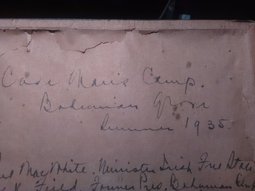 Cave Man's Camp.
Bohemian Grove
Summer 1935.
MacWhite. Minister Irish Free State
Field Former Pres. Bohemian Club